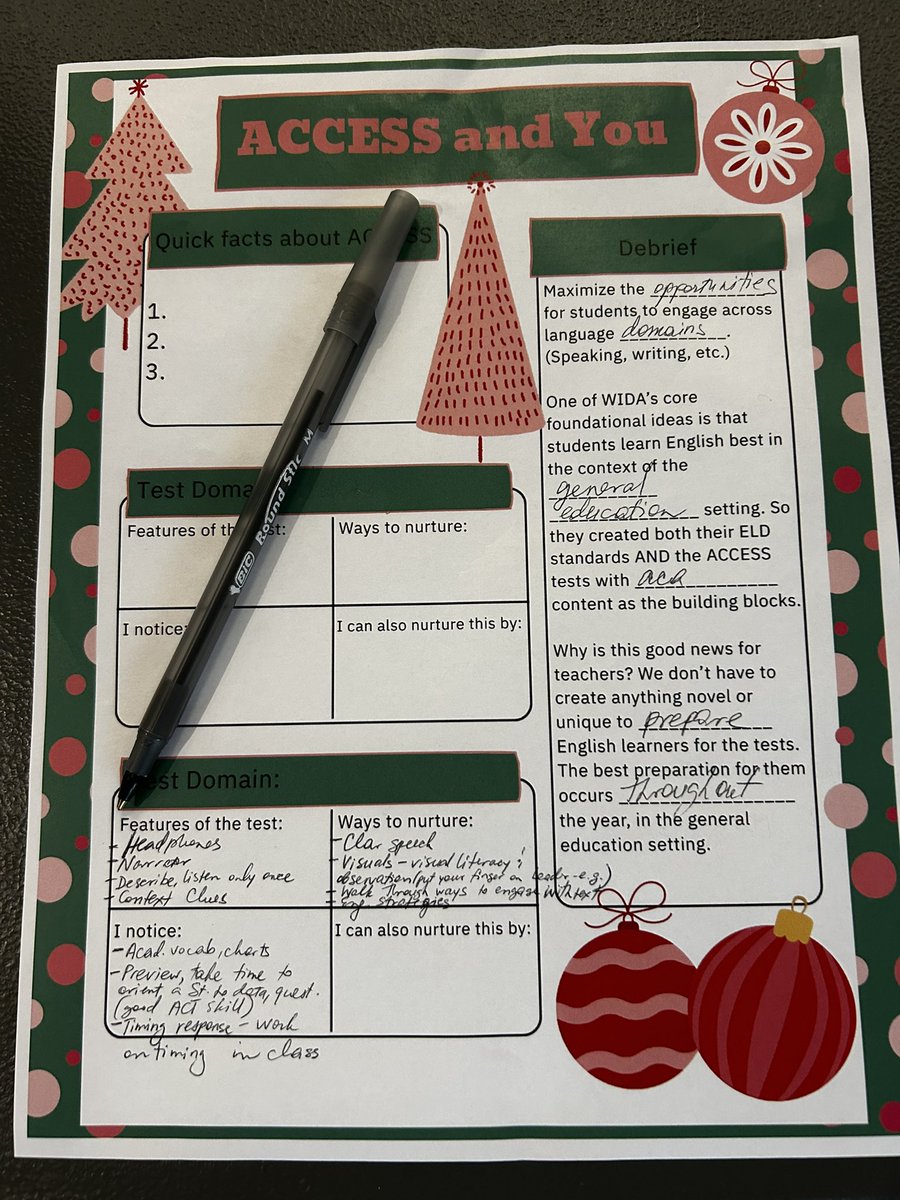 ACCESS and You
Quick facts about ACCESS
1.
2.
3.
Test Doma
Features of the test:
Ways to nurture:
I notice:
I can also nurture this by:
Test Domain:
Features of the test:
- Headphones
- Narrator
- Describe, listen only once
- Context Clues
Ways to nurture:
- Clar speech
- Visuals - visual literacy &
observation (put your finger on header - e.g.)
- Walk through ways to engage with text
- eng. strategies
I notice:
- Acad. vocab, charts
- Preview, take time to
orient a St. to data, quest.
(good ACT skill)
- Timing response - work
on timing in class
I can also nurture this by:
Debrief
Maximize the opportunities
for students to engage across
language domains.
(Speaking, writing, etc.)
One of WIDA's core
foundational ideas is that
students learn English best in
the context of the
general
education setting. So
they created both their ELD
standards AND the ACCESS
tests with aca
content as the building blocks.
Why is this good news for
teachers? We don't have to
create anything novel or
unique to prepare
English learners for the tests.
The best preparation for them
occurs throughout
the year, in the general
education setting.
BIC Round Stic M